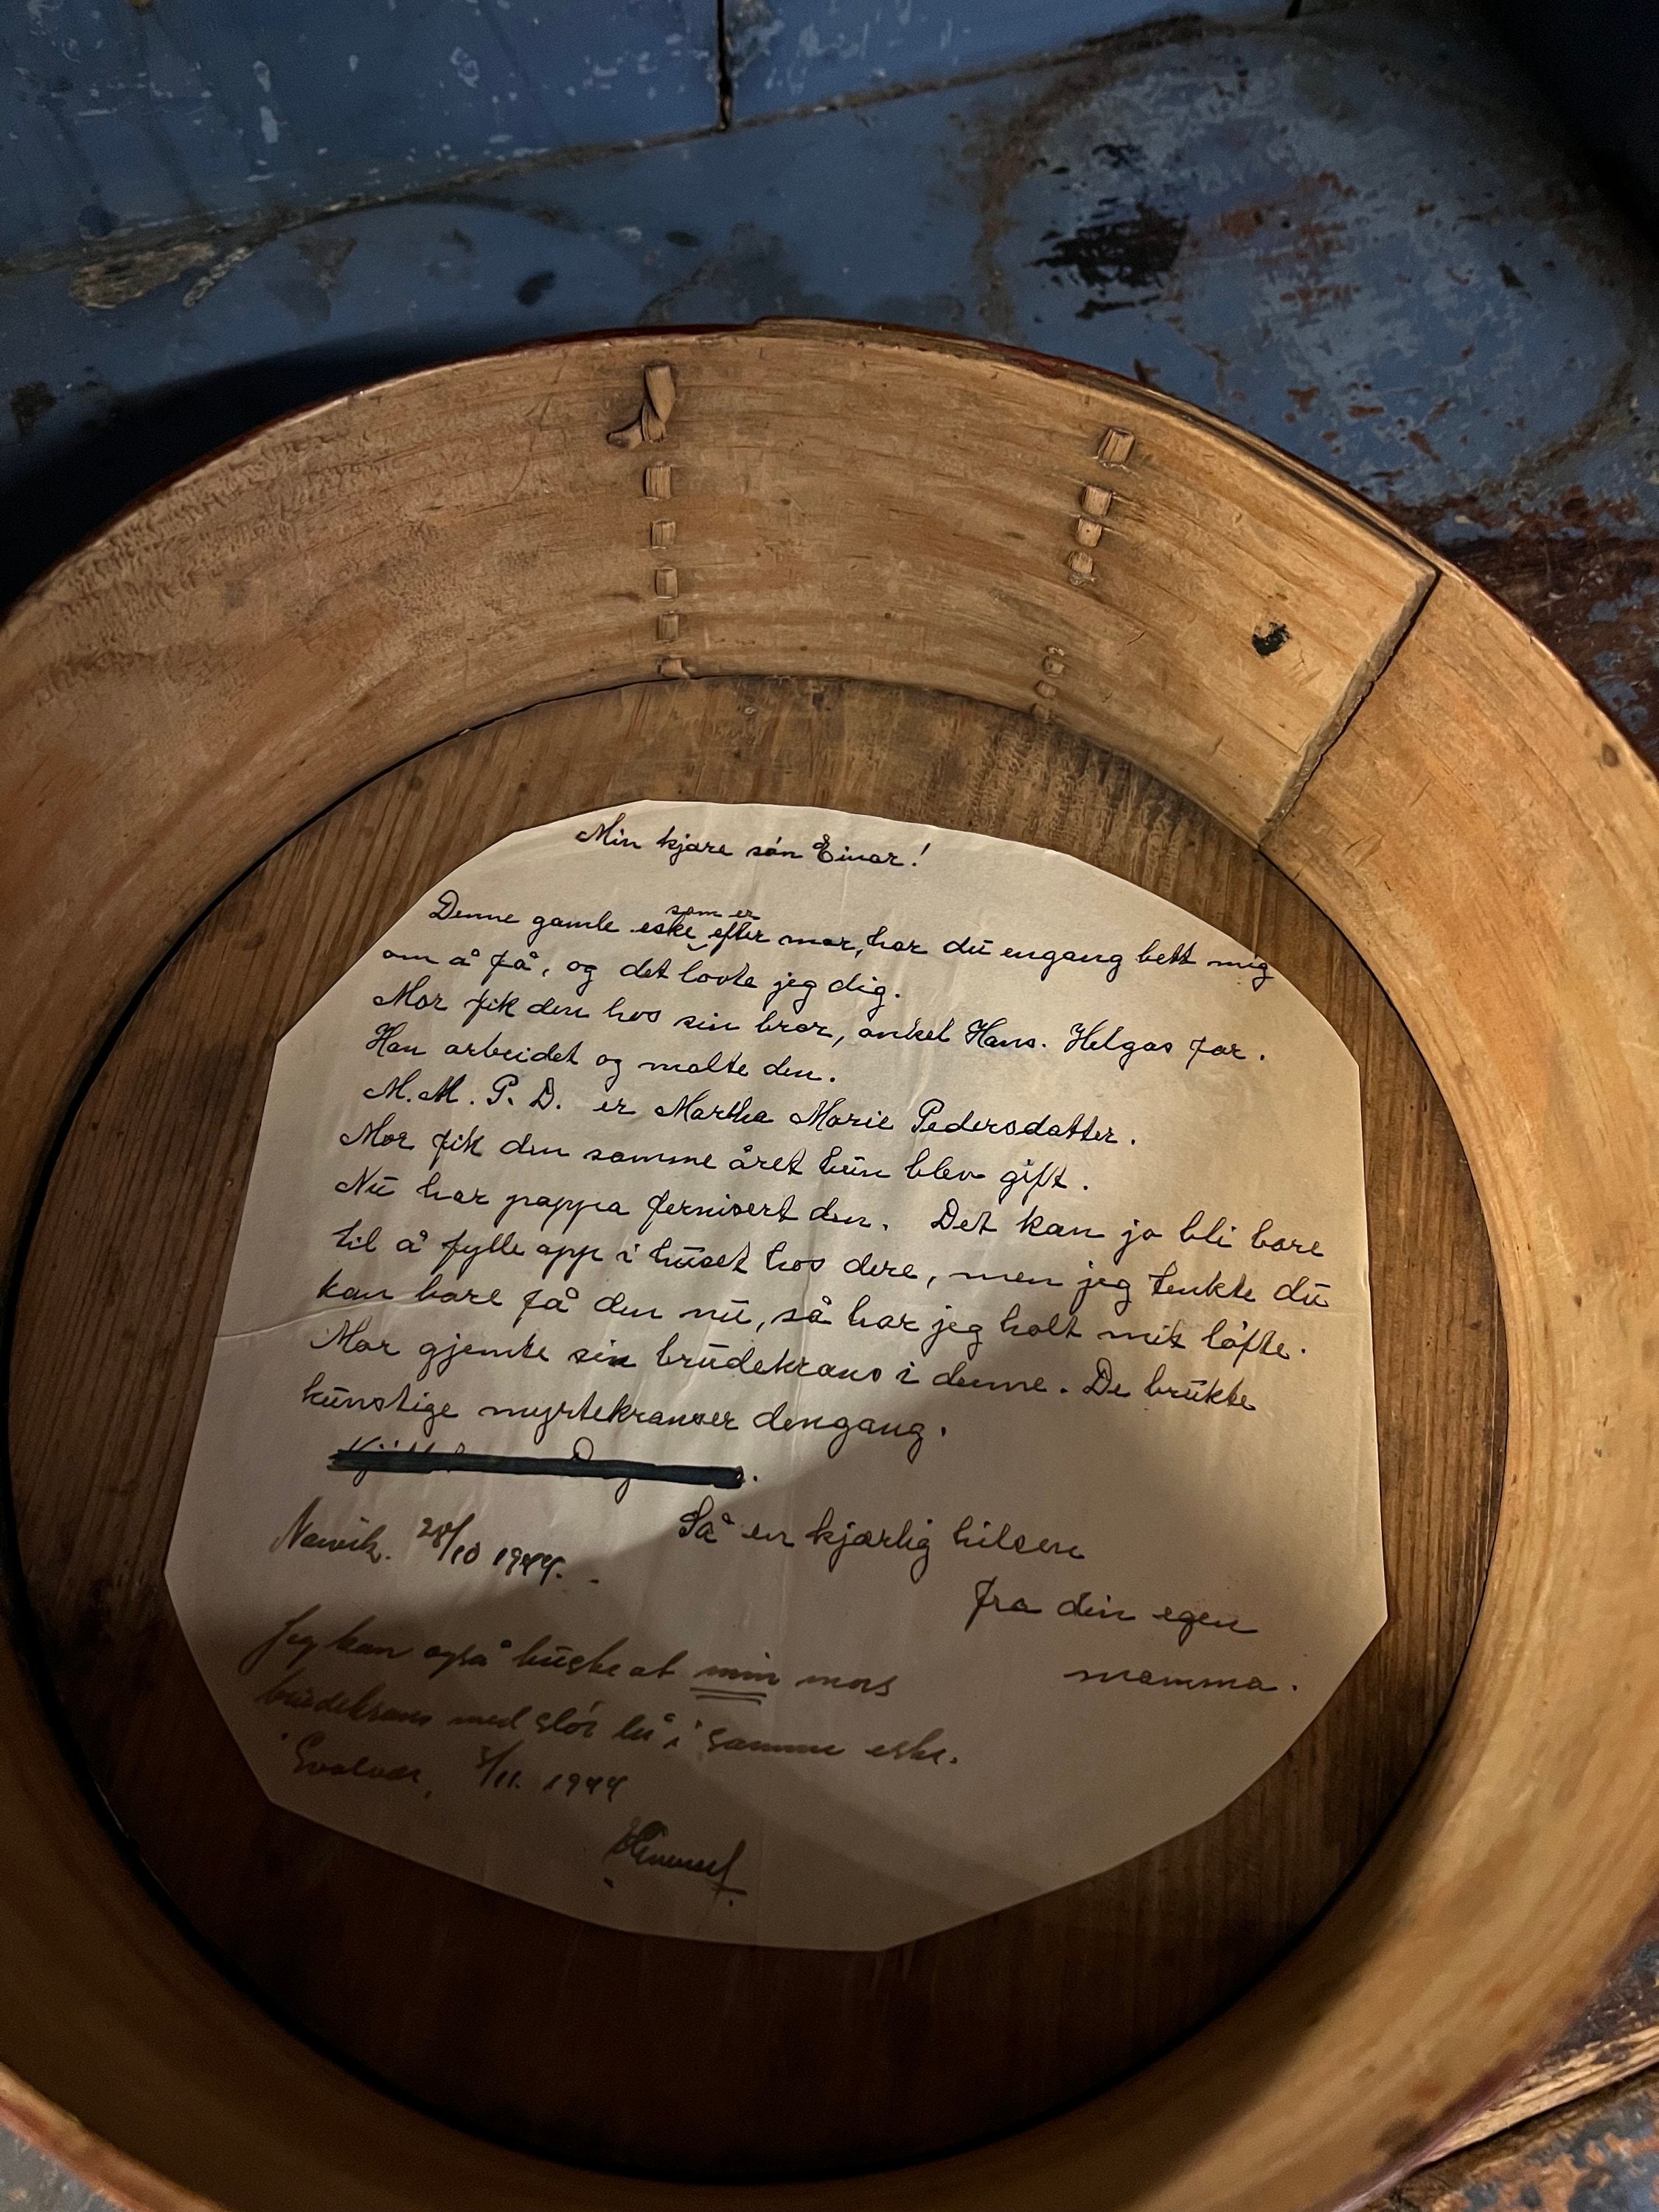 Min kjære søn Einar!
Denne gamle eske som er efter mor, har du engang bett mig
om å få, og det lovte jeg dig.
Mor fik den hos sin bror, onkel Hans. Helgas far.
Han arbeidet og malte den.
M. M. P. D. er Martha Marie Pedersdatter.
Mor fik den samme året hun blev gift.
Nu har pappa fernisert den. Det kan jo bli bare
til å fylle opp i huset hos dere, men jeg tenkte du
kan bare få den nu, så har jeg holt mit løfte.
Mor gjemte sin brudekrans i denne. De brukte
kunstige myrtekranser dengang.
Så en kjærlig hilsen
fra din egen
mamma.
Narvik. 28/10 1944.
Jeg kan også huske at min mors
brudekrans med slør lå i samme eske.
Svolvær, /11. 1944